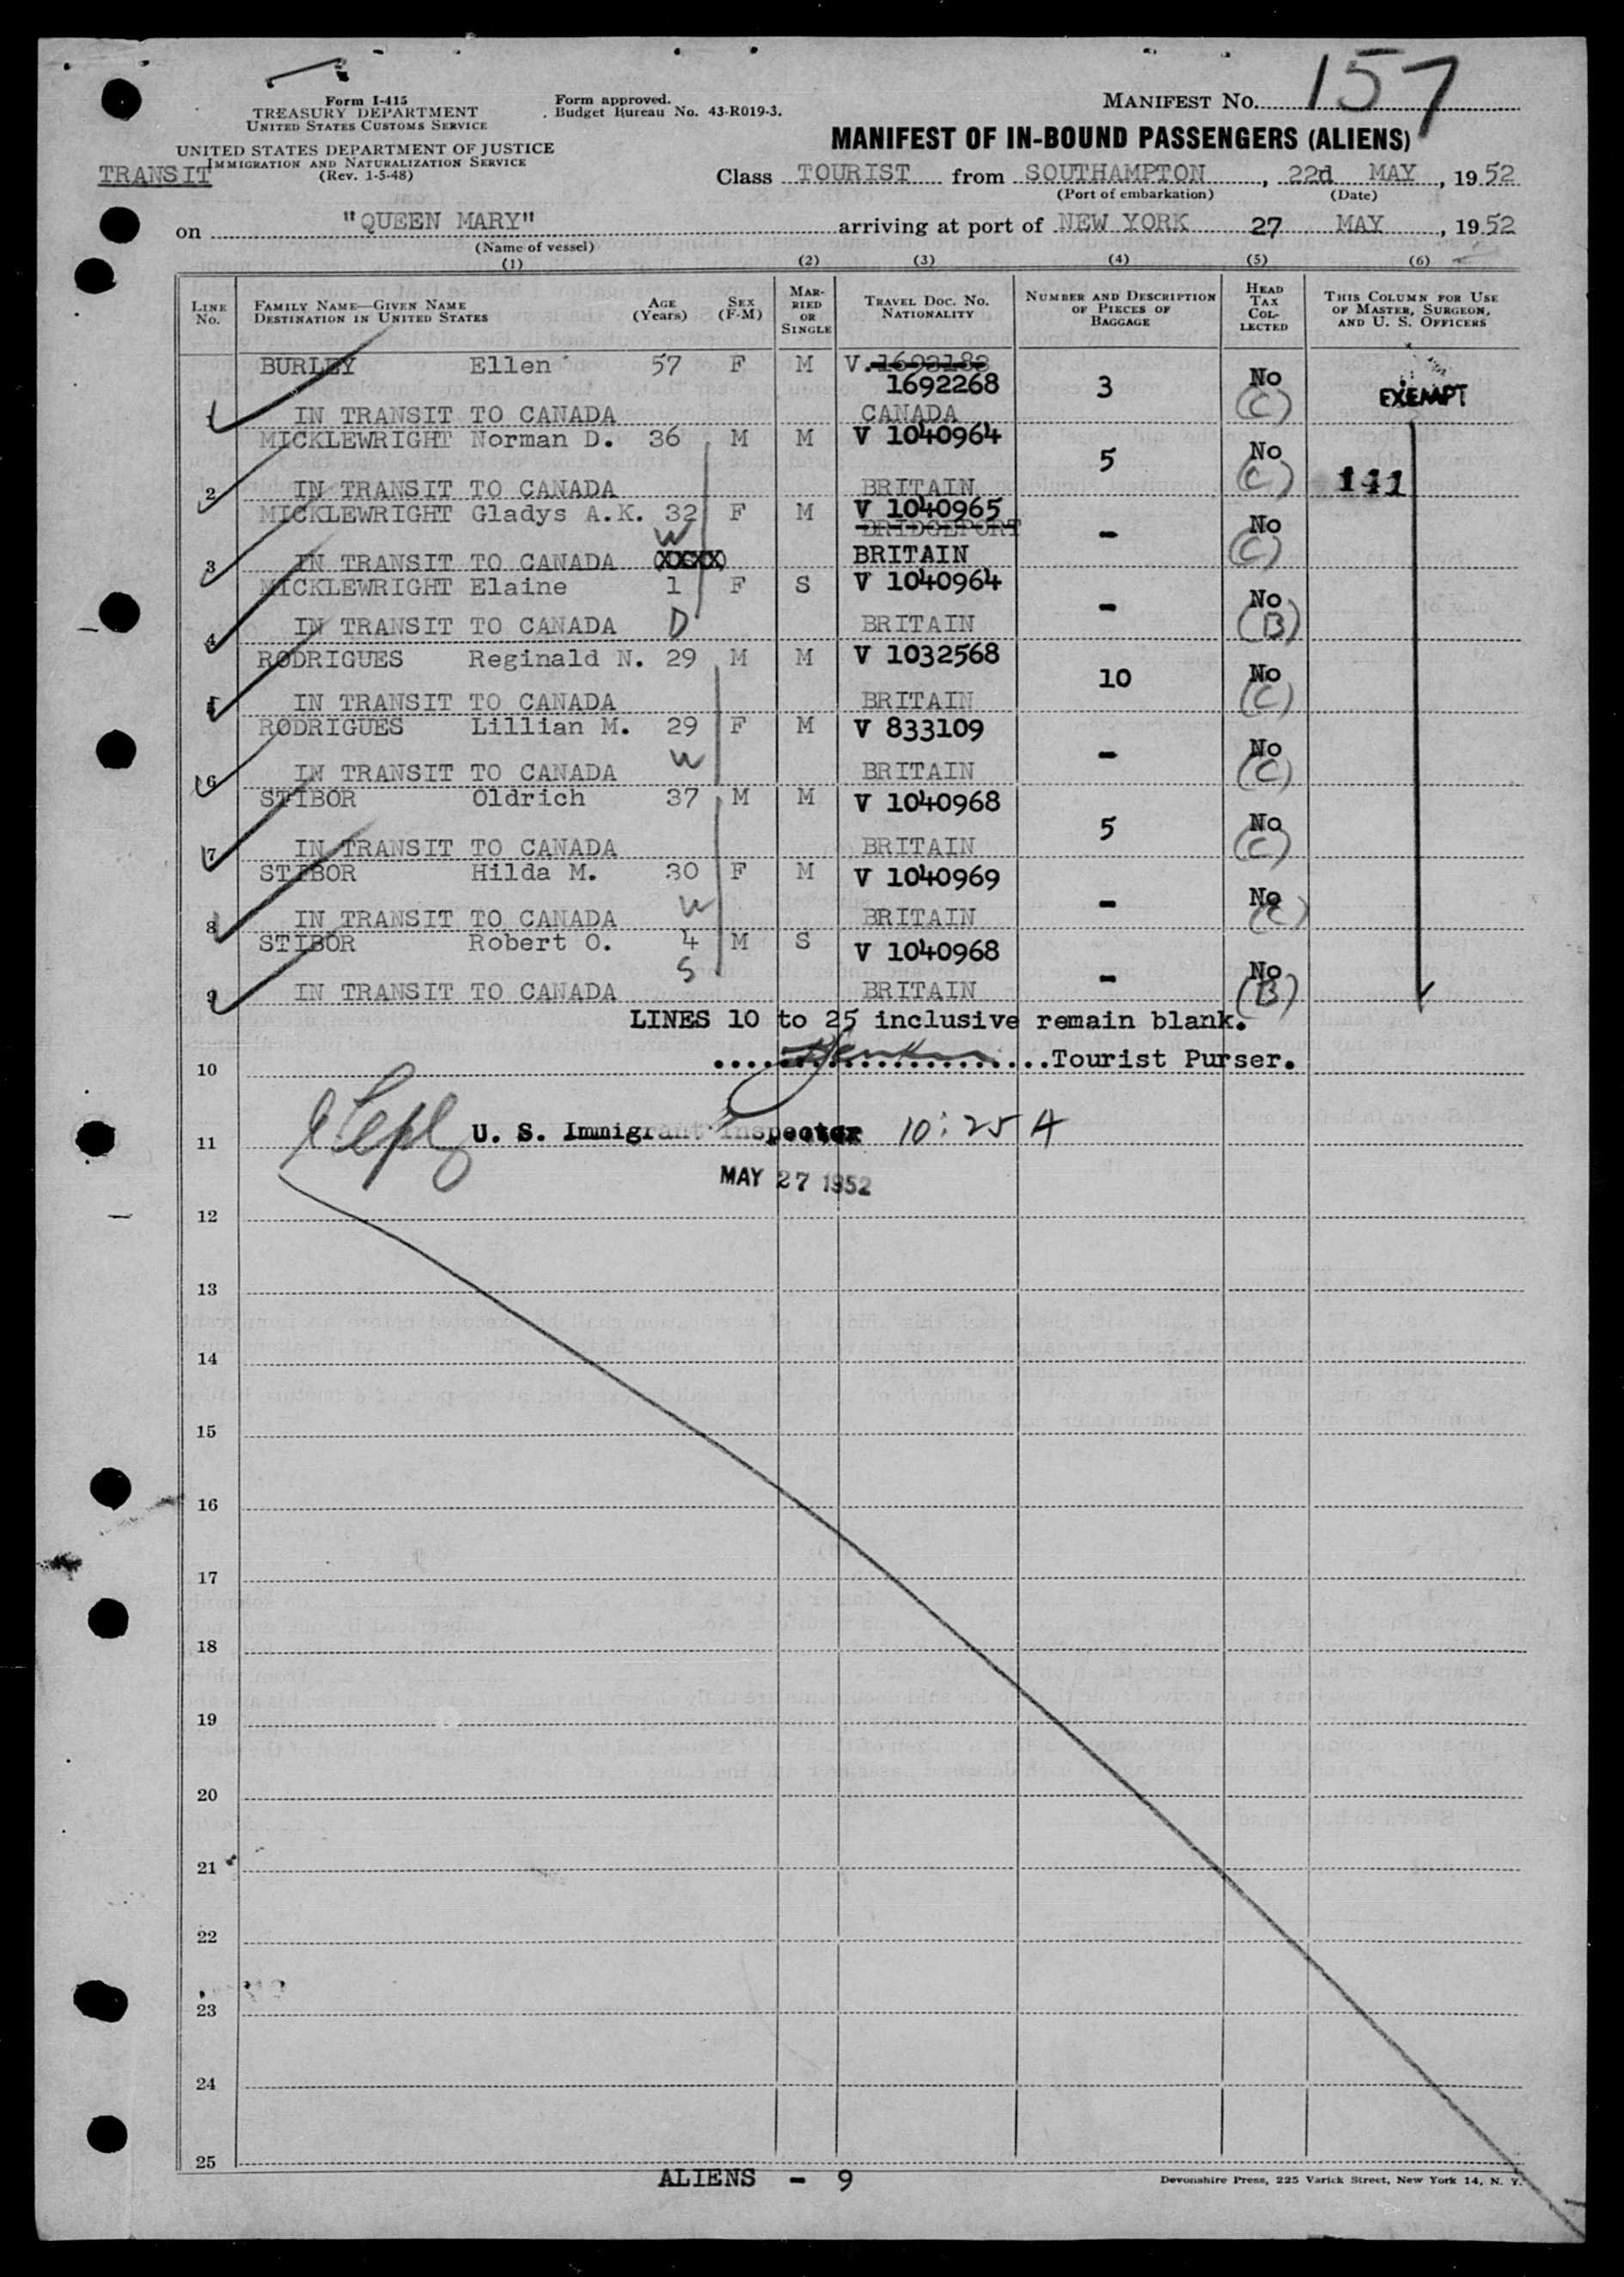 157
Form I-415
TREASURY DEPARTMENT
UNITED STATES CUSTOMS SERVICE
UNITED STATES DEPARTMENT OF JUSTICE
IMMIGRATION AND NATURALIZATION SERVICE
(Rev. 1-5-48)
TRANSIT
Form approved.
Budget Bureau No. 43-R019-3.
MANIFEST No.
MANIFEST OF IN-BOUND PASSENGERS (ALIENS)
Class TOURIST from SOUTHAMPTON, 22d MAY, 1952
(Port of embarkation) (Date)
on "QUEEN MARY" arriving at port of NEW YORK 27 MAY, 1952
(Name of vessel)
(1) (2) (3) (4) (5) (6)
LINE No. FAMILY NAME—GIVEN NAME DESTINATION IN UNITED STATES AGE (Years) SEX (F-M) MARRIED OR SINGLE TRAVEL DOC. NO. NATIONALITY NUMBER AND DESCRIPTION OF PIECES OF BAGGAGE HEAD TAX COLLECTED THIS COLUMN FOR USE OF MASTER, SURGEON, AND U. S. OFFICERS
BURLEY Ellen 57 F M V.1692182
1692268 3 No EXEMPT
1 IN TRANSIT TO CANADA CANADA (C)
MICKLEWRIGHT Norman D. 36 M M V 1040964
5 No
2 IN TRANSIT TO CANADA BRITAIN (C) 141
MICKLEWRIGHT Gladys A.K. 32 F M V 1040965
W BRIDGEPORT - No
3 IN TRANSIT TO CANADA (XXXX) BRITAIN (C)
MICKLEWRIGHT Elaine 1 F S V 1040964
- No
4 IN TRANSIT TO CANADA D BRITAIN (B)
RODRIGUES Reginald N. 29 M M V 1032568
10 No
5 IN TRANSIT TO CANADA BRITAIN (C)
RODRIGUES Lillian M. 29 F M V 833109
- No
6 IN TRANSIT TO CANADA W BRITAIN (C)
STIBOR Oldrich 37 M M V 1040968
5 No
7 IN TRANSIT TO CANADA BRITAIN (C)
STIBOR Hilda M. 30 F M V 1040969
- No
8 IN TRANSIT TO CANADA W BRITAIN (C)
STIBOR Robert O. 4 M S V 1040968
S - No
9 IN TRANSIT TO CANADA BRITAIN (B)
LINES 10 to 25 inclusive remain blank.
10 Tourist Purser.
11 U. S. Immigrant Inspector 10:25 A
MAY 27 1952
12
13
14
15
16
17
18
19
20
21
22
23
24
25
ALIENS - 9
Devonshire Press, 225 Varick Street, New York 14, N. Y.